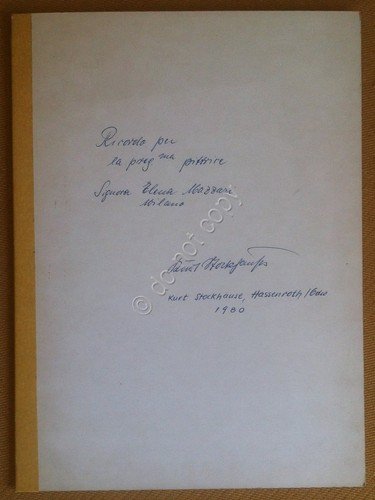 Ricordo per
la preg.ma pittrice
Signora Elena Mazzari
Milano
Kurt Stockhause
Kurt Stockhause, Hassenroth / Odw
1980
© do not copy